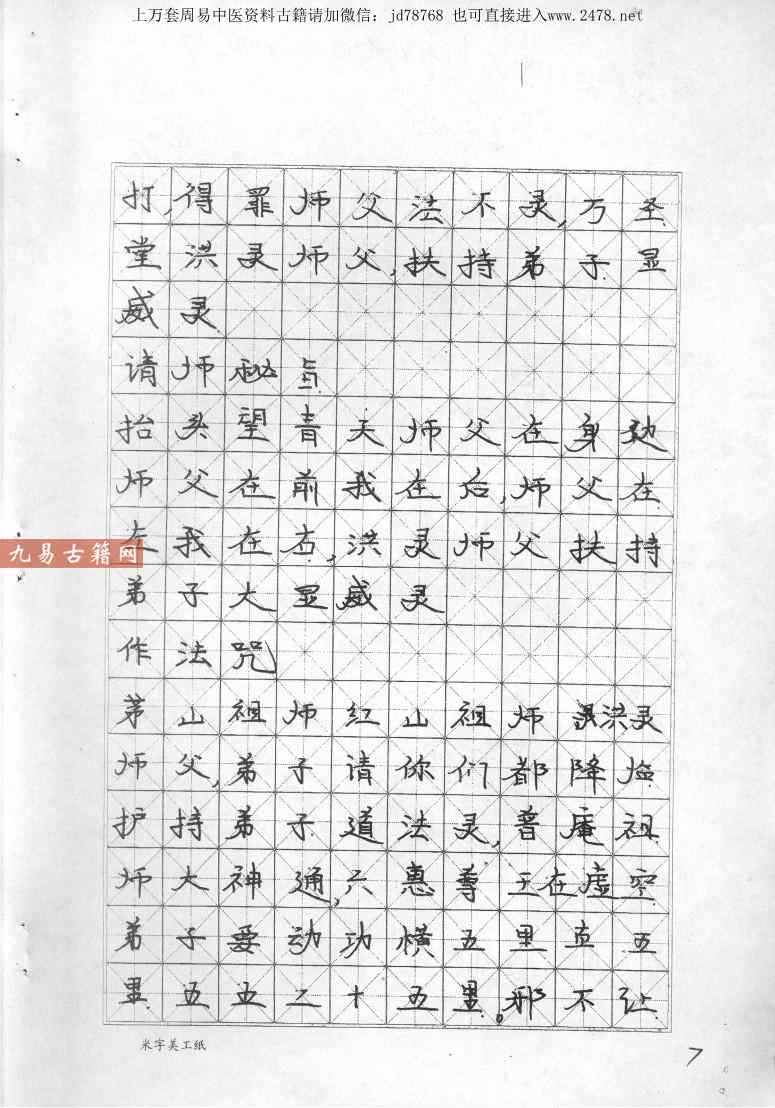 上万套周易中医资料古籍请加微信：jd78768 也可直接进入www.2478.net
打,得罪师父法不灵,万圣
堂洪灵师父,扶持弟子显
威灵
请师秘
抬头望青天师父在身边
师父在前我在后,师父在
左我在右,洪灵师父扶持
九易古籍网
弟子大显威灵
作法咒
茅山祖师红山祖师洪灵
师父,弟子请你们都降临
护持弟子道法灵,普庵祖
师大神通,六惠尊王在虚空
弟子要动功横五里直五
里五五二十五里。邪不让
米字美工纸
7